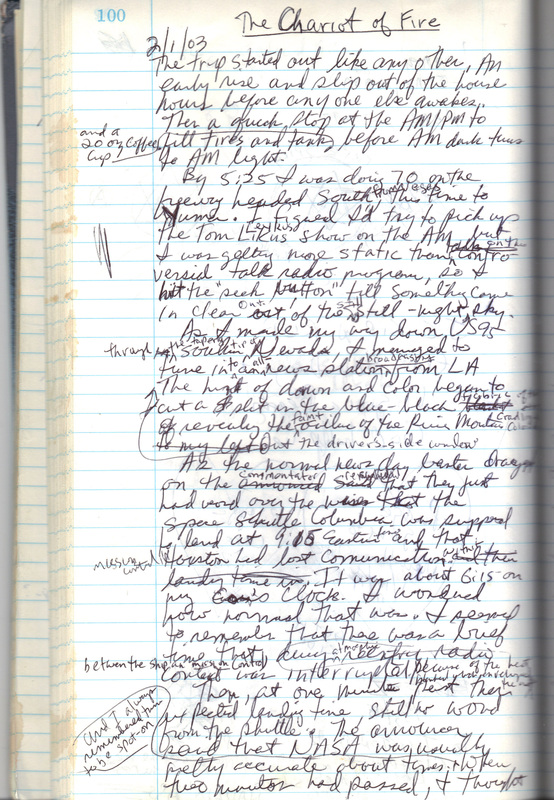 100
The Chariot of Fire
2/1/03
The trip started out like any other, An
early rise and slip out of the house
hours before any one else awakes.
Then a quick stop at the AM/PM to
and a
20 oz Coffee
Cup
fill tires and tank, before AM dark turns
to AM light.
By 5:25 I was doing 70 on the
freeway headed South, this time to
Yuma. I figured I'd try to pick up
the Tom Likus show on the AM, but
I was getting more static than contro
versial talk radio program, so I
hit the "seek button" till something came
in clear out of the still-night sky.
As I made my way down US95
through
Southern Nevada, I managed to
tune into an all news station broadcast from LA
The hint of dawn and color began to
cut a slit in the blue-black
of revealing the outline of the River Mountains
to my left out the drivers side window
As the normal news day banter
on the commentator said that they just
had word over the wires that the
space shuttle Columbia was supposed
to land at 9:15 Eastern time and that
mission
control
Houston had lost comunication
landing time in. It was about 6:15 on
my Clock. I wondered
how normal that was. I seemed
to remember that there was a brief
time that during almost radio
between the ship an mission control
contact was interrupted because of the heat
Then, at one minute past their
expected landing time, still no word
and I always
remembered them
to be spot-on
from the shuttle. The announcer
said that NASA was usually
pretty accurate about times. When
two minutes had passed, I thought